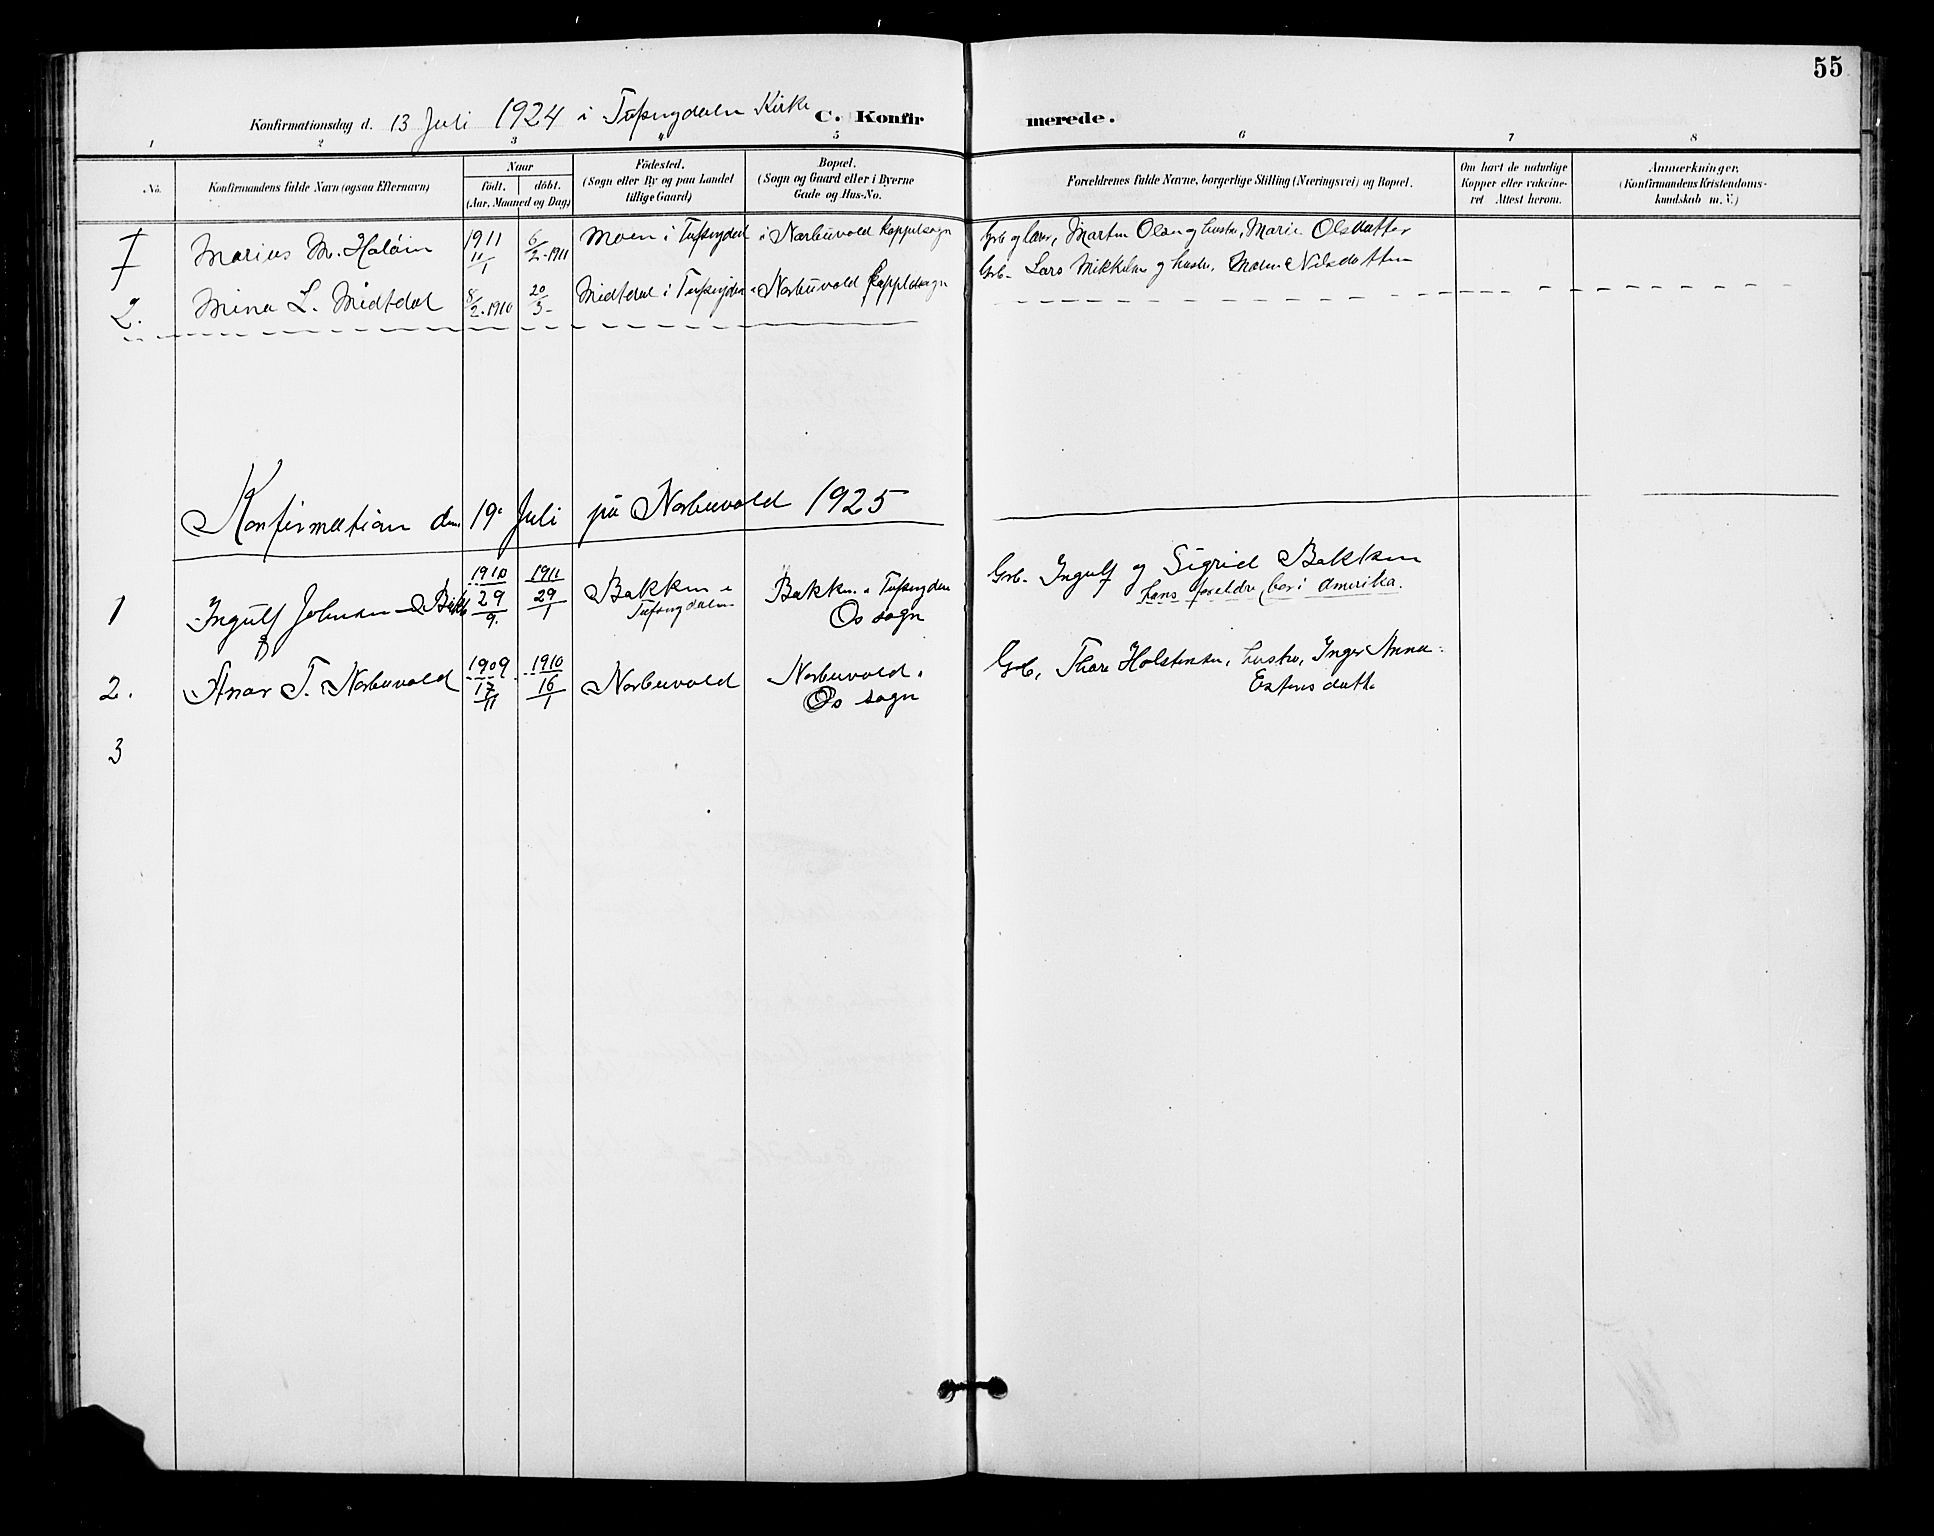 55
Konfirmationsdag d. 13 Juli 1924 i Tufsingdalen Kirke C. Konfirmerede.
1 2 3 4 5 6 7 8
No. Konfirmandens fulde Navn (ogsaa Efternavn) Naar födt. döbt. (Aar, Maaned og Dag) Födested. (Sogn eller By og paa Landet tillige Gaard) Bopæl. (Sogn og Gaard eller i Byerne Gade og Hus-No. Forældrenes fulde Navne, borgerlige Stilling (Næringsvei) og Bopæl. Om havt de naturlige Kopper eller vakcineret Attest herom. Anmærkninger, (Konfirmandens Kristendomskundskab m. V.)
Marius M. 1911 11/1 6/2-1911 Moen i Tufsingdal i Narbuvold Kappelsogn Grb og lærer, Martin Olsen og hustru, Marie Olsdatter
2. Mina L. Midtdal 8/2-1910 20/3- Midtdal i Tufsingdal Narbuvold Kappelsogn Grb- Lars Mikkelsen og hustru, Malen Nilsdatter
Konfirmation den 19. Juli på Narbuvold 1925
1 Ingulf Johnsen 1910 29/9. 1911 29/1 Bakken i Tufsingdalen Bakken i Tufsingden Os sogn Grb. Ingulf og Sigrid Bakken
hans foreldre bor i Amerika.
2. Anar T. Narbuvold 1909 17/11 1910 16/1 Narbuvold Narbuvold. Os sogn Grb, Thore Holstensen, hustru, Inger Anna
Estensdatt.
3